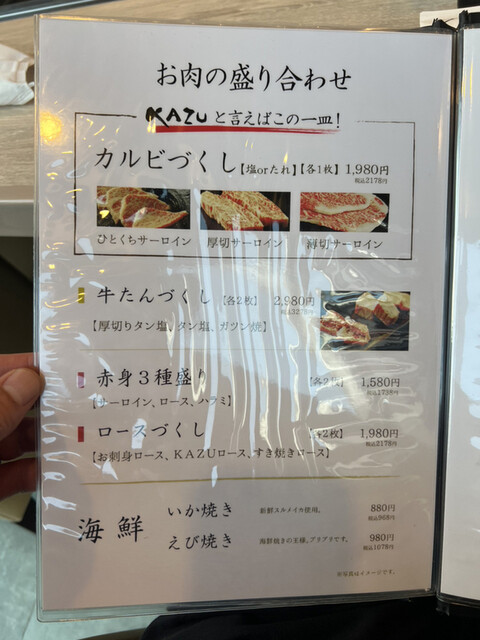 お肉の盛り合わせ
KAZUと言えばこの一皿!
カルビづくし【塩orたれ】【各1枚】1,980円
税込2178円
ひとくちサーロイン 厚切サーロイン 薄切サーロイン
牛たんづくし【各2枚】2,980円
税込3278円
【厚切りタン塩、タン塩、ガツン焼】
赤身3種盛り【各2枚】1,580円
税込1738円
【サーロイン、ロース、ハラミ】
ロースづくし【各2枚】1,980円
税込2178円
【お刺身ロース、KAZUロース、すき焼きロース】
海鮮
いか焼き 新鮮スルメイカ使用。 880円
税込968円
えび焼き 海鮮焼きの王様、プリプリです。 980円
税込1078円
※写真はイメージです。